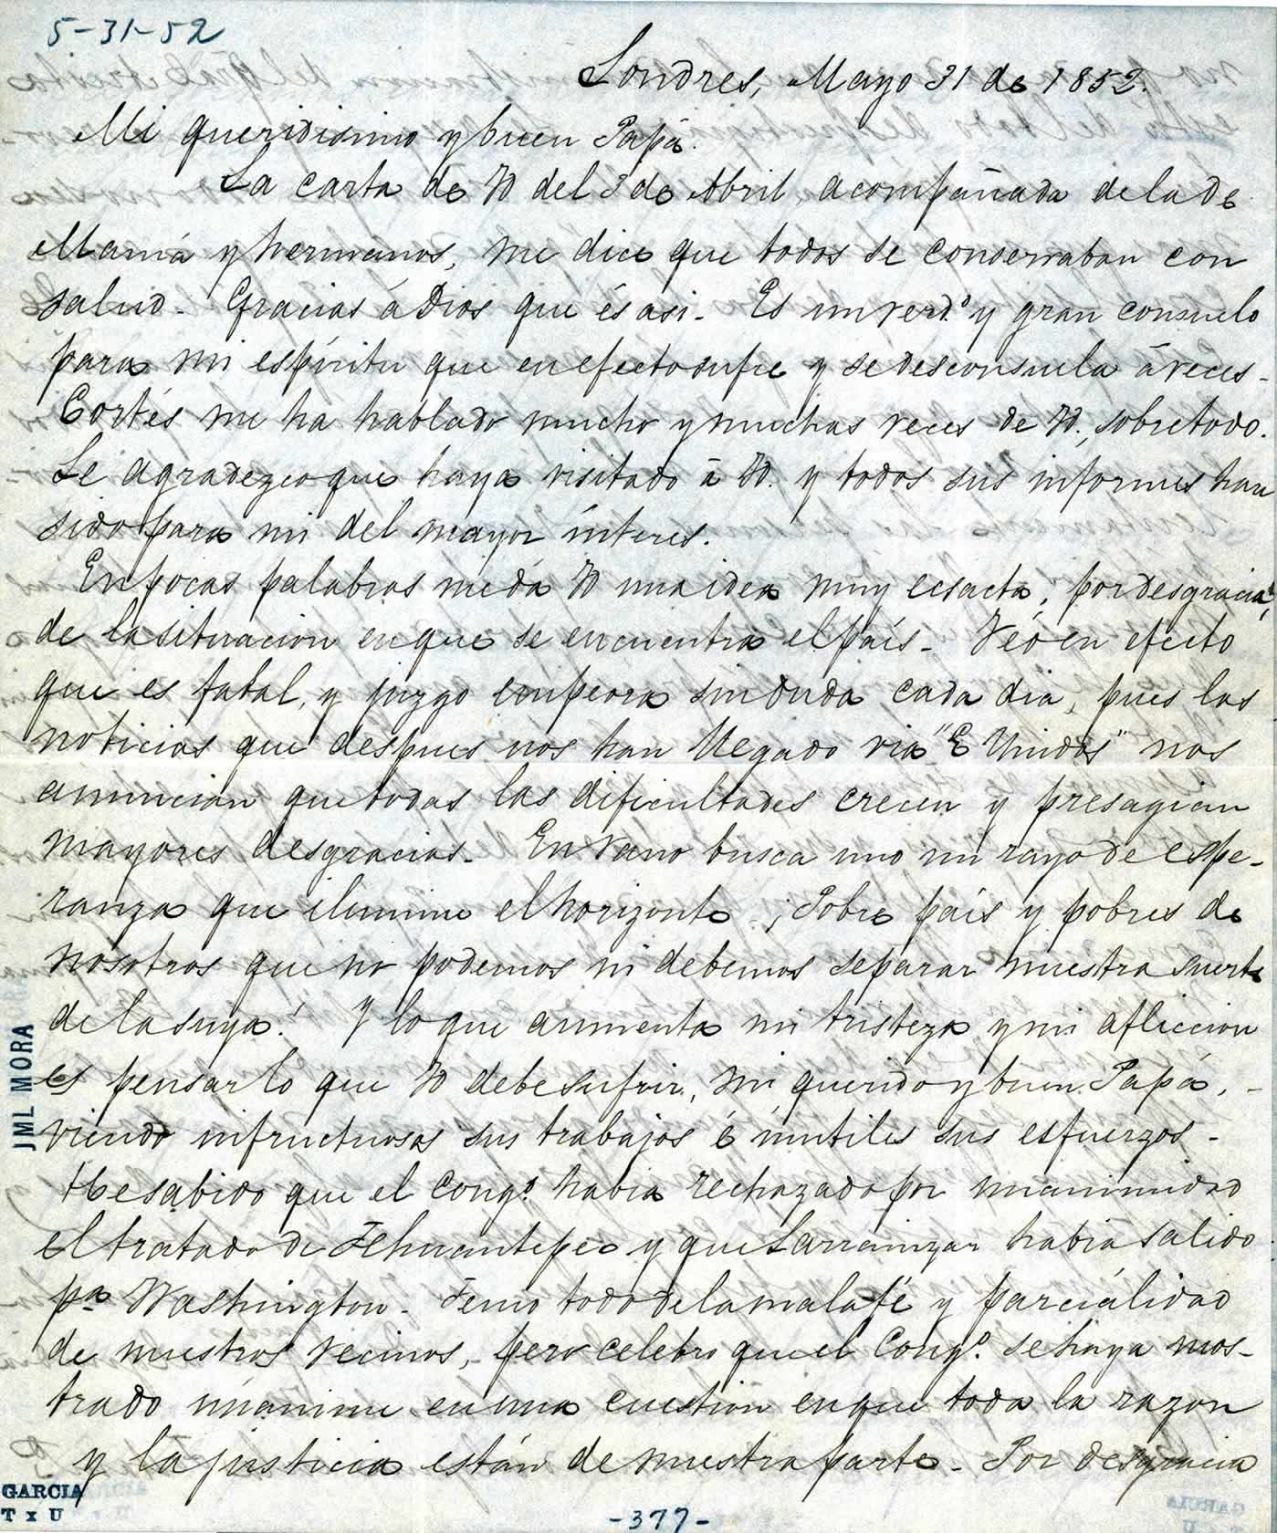 5-31-52
Londres, Mayo 31 de 1852.
Mi queridisimo y buen Papá.
La carta de V del 3 de Abril, acompañada de la de
Mamá y hermanos, me dice que todos se conservaban con
salud. Gracias á Dios que és asi. Es un verd.º y gran consuelo
para mi espíritu que en efecto sufre y se desconsuela á veces.
Cortés me ha hablado mucho y muchas veces de V., sobre todo.
Le agradezco que haya visitado á V. y todos sus informes han
sido para mi del mayor ínteres.
En pocas palabras me dá V una idea muy ecsacta, por desgracia,
de la situacion en que se encuentra el país. Véo en efecto
que es fatal, y juzgo empeora sin duda cada dia, pues las
noticias que despues nos han llegado via "E Unidos" nos
anuncian que todas las dificultades crecen y presagian
mayores desgracias. En vano busca uno un rayo de espe-
ranza que ilumine el horizonte. ¡Pobre país y pobres de
nosotros que no podemos ni debemos separar nuestra suerte
de la suya! Y lo que aumenta mi tristeza y mi afliccion
es pensar lo que V debe sufrir, mi querido y buen Papá, -
viendo infructuosos sus trabajos é inutiles sus esfuerzos.
He sabido que el Cong.º habia rechazado por unanimidad
el tratado de Tehuantepec y que Larrainzar habia salido
pª Washington. Temo todo de la mala fé y parciálidad
de nuestros vecinos, pero celebro que el Cong.º se haya mos-
trado unánime en una cuestion en que toda la razon
y la justicia están de nuestra parte. Por desgracia
JML MORA
GARCIA
T x U
-377-
GARCIA
U